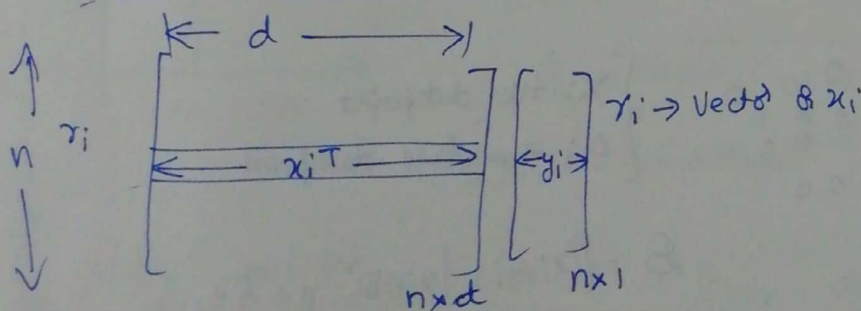 d
n rᵢ xᵢᵀ yᵢ rᵢ → Vector & xᵢ
n×d n×1